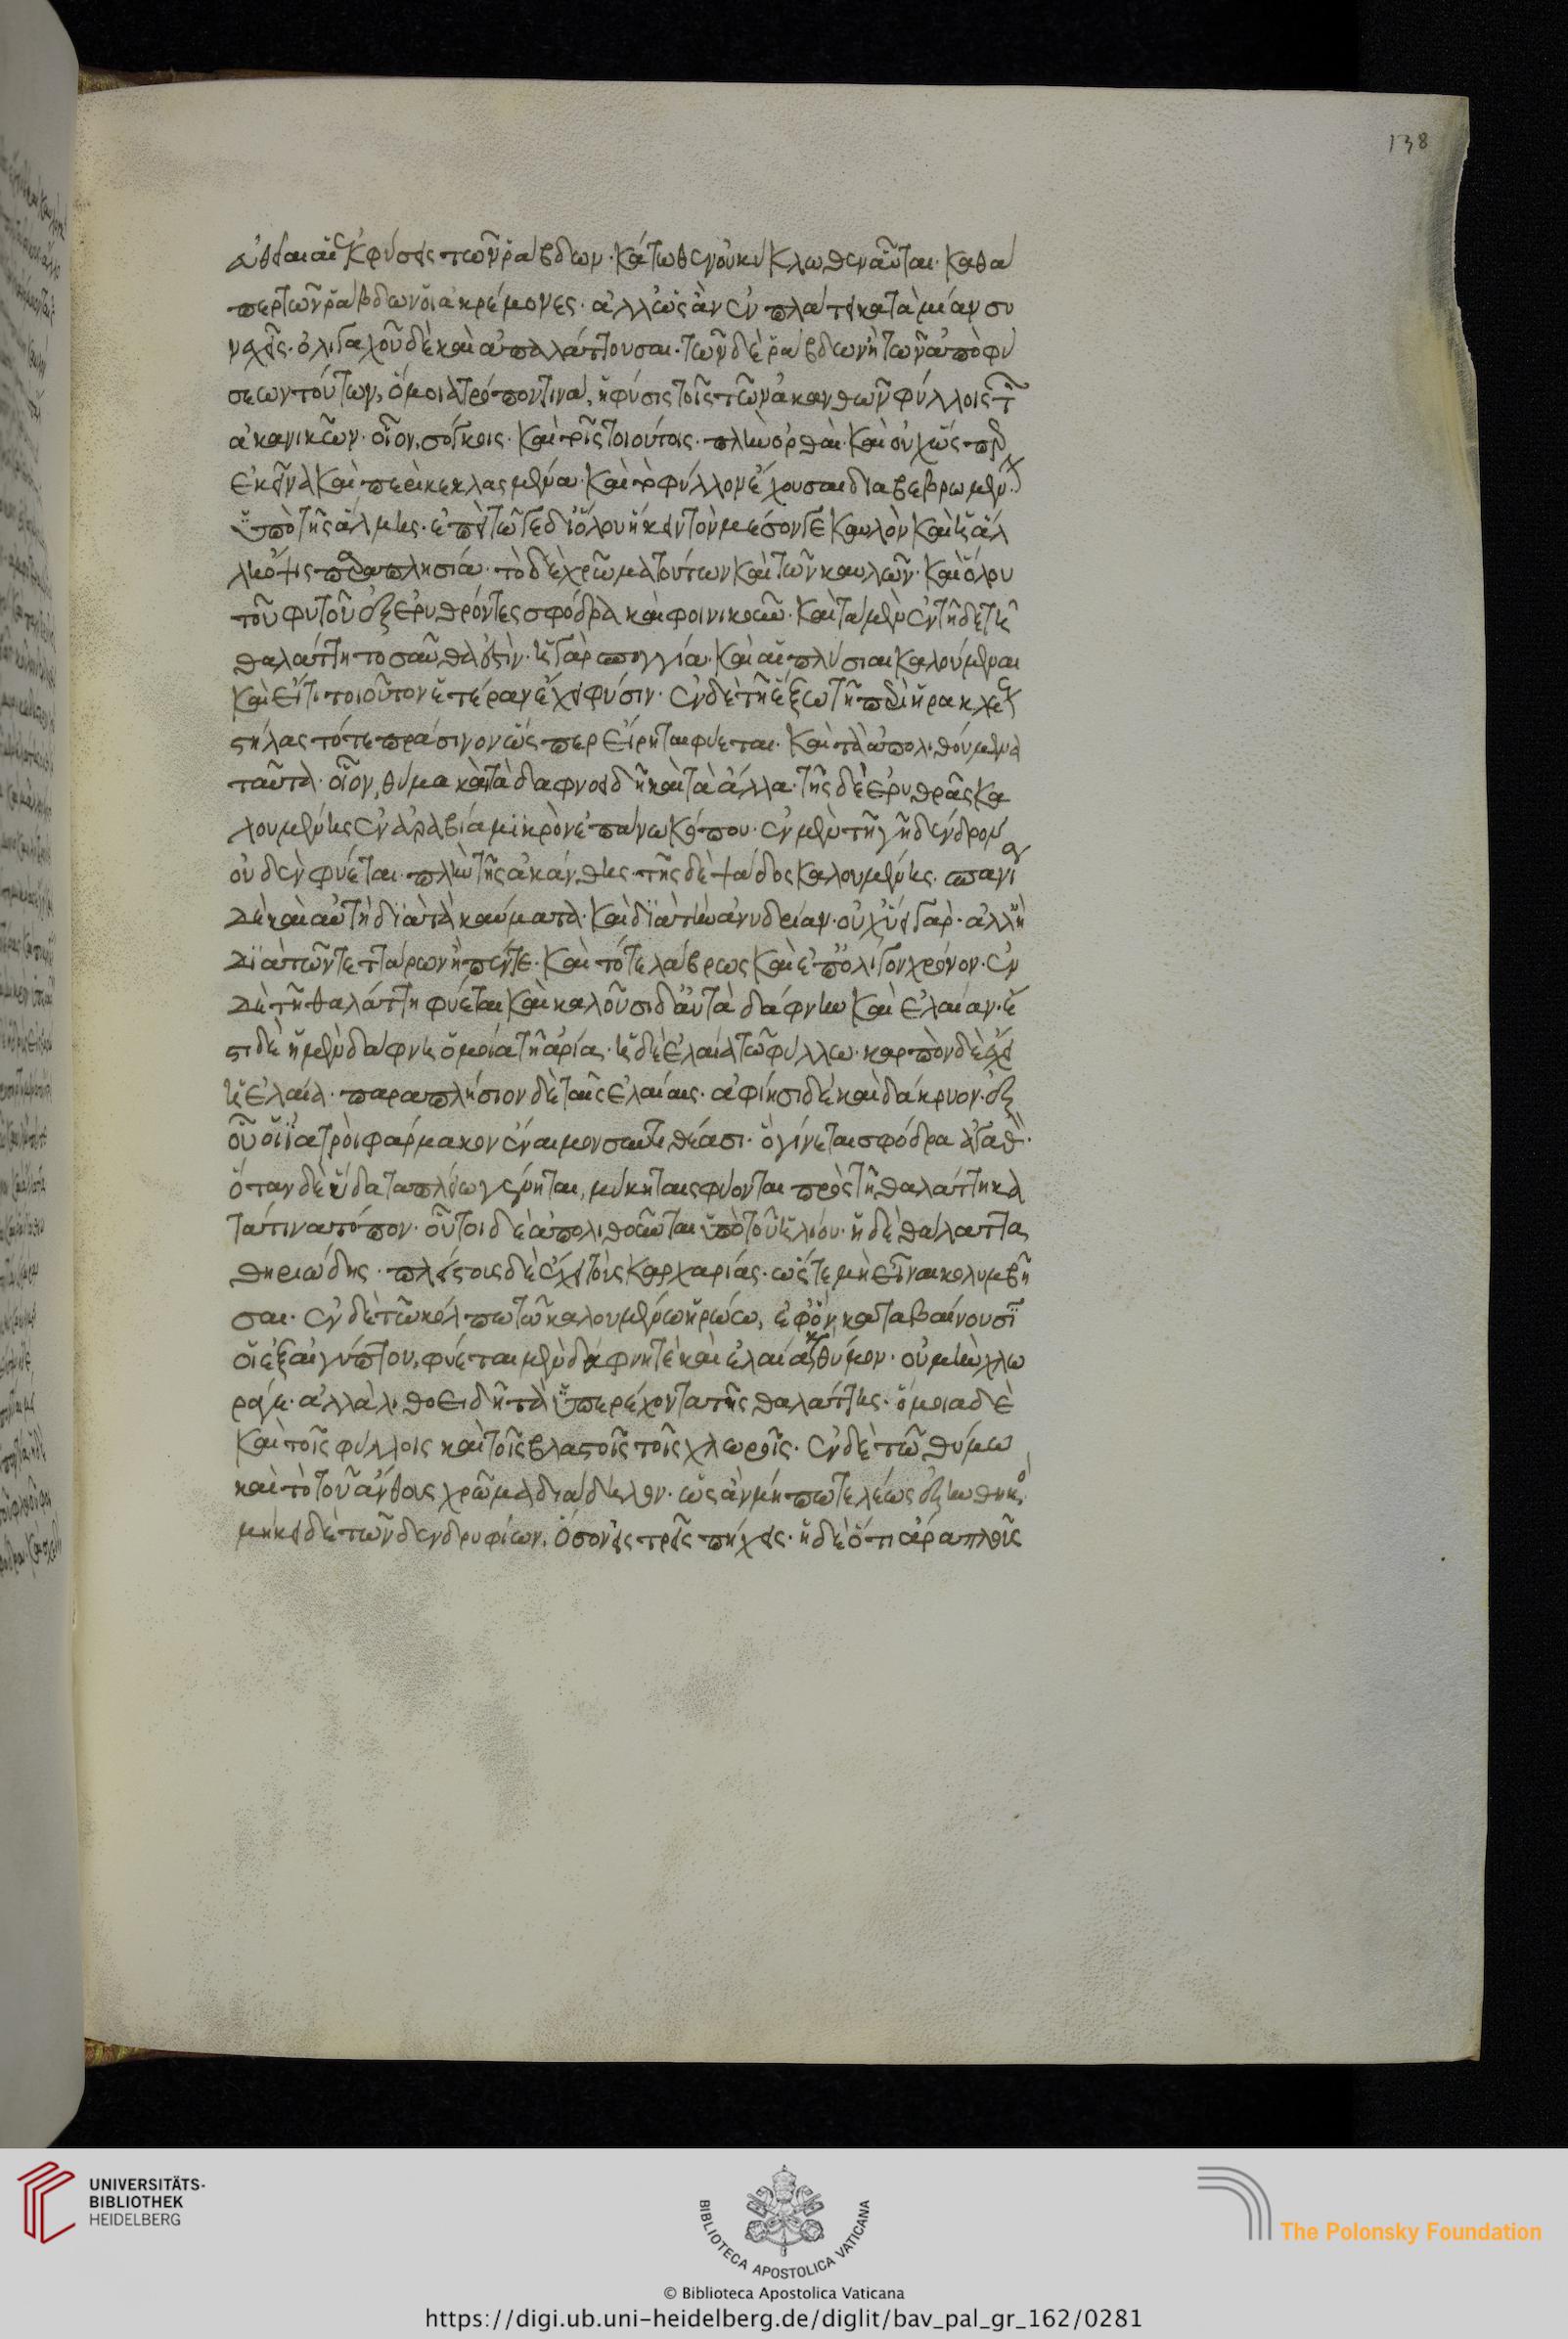 138
εὐθεῖαι αἱ ἐκφύσεις τῶν ῥάβδων· κάτωθεν οὐ κύκλωθεν αὗται· καθά
περ τῶν ῥάβδων οἱ ἀκρέμονες· ἀλλ' ὡς ἂν ἐν πλάτει κατὰ μίαν συ
νεχεῖς· ὀλιγαχοῦ δὲ καὶ ἀπαλάττουσαι· τῶν δὲ ῥάβδων ἢ τῶν ἀποφύ
σεων τούτων, ὁμοία τρόπον τινά, ἡ φύσις τοῖς τῶν ἀκανθῶν φύλλοις τῶν
ἀκανικῶν· οἷον, σόγκοις· καὶ τοῖς τοιούτοις· πλὴν ὀρθαὶ· καὶ οὐχ ὥσπερ
ἐκεῖνα καὶ περικεκλασμένα· καὶ τὸ φύλλον ἔχουσαι διαβεβρωμένον
ὑπὸ τῆς ἅλμης· ἐπεὶ τῶ γε δι' ὅλου ἥκειν τὸν μέσον γε καυλὸν καὶ ἡ ἄλ
λη ὄψις παραπλησία· τὸ δὲ χρῶμα τούτων καὶ τῶν καυλῶν· καὶ ὅλου
τοῦ φυτοῦ ἐξέρυθρόν τε σφόδρα καὶ φοινικοῦν· καὶ τὰ μὲν ἐν τῆδε τῆ
θαλάττη τοσαῦθά ἐστιν· ἡ γὰρ σπογγία· καὶ αἱ πλύσιαι καλούμεναι
καὶ εἴ τι τοιοῦτον ἑτέραν ἔχει φύσιν· ἐν δὲ τῆ ἔξω τῆ περὶ ἡρακλέους
στήλας τό τε πράσινον ὥσπερ εἴρηται φύεται· καὶ τὰ ἀπολιθούμενα
ταῦτα· οἷον, θύμα καὶ τὰ δαφνοειδῆ καὶ τὰ ἄλλα· τῆς δὲ ἐρυθρᾶς κα
λουμένης ἐν ἀραβία μικρὸν ἐπάνω κόπου· ἐν μὲν τῆ γῆ δένδρον
οὐδὲν φύεται πλὴν τῆς ἀκάνθης τῆς διψάδος καλουμένης· σπανία
δὲ καὶ αὐτὴ διὰ τὰ καύματα· καὶ διὰ τὴν ἀνυδρίαν· οὐχ ὕει γὰρ· ἀλλ' ἢ
δι' ἐτῶν τεττάρων ἢ πέντε· καὶ τότε λάβρως καὶ ἐπ' ὀλίγον χρόνον· ἐν
δὲ τῆ θαλάττη φύεται καὶ καλοῦσι δ' αὐτὰ δάφνην καὶ ἐλαίαν· ἔ
στι δὲ ἡ μὲν δάφνη ὁμοία τῆ ἀρία· ἡ δὲ ἐλαία τῶ φύλλω· καρπὸν δὲ ἔχει
ἡ ἐλαία· παραπλήσιον δὲ ταῖς ἐλαίαις· ἀφίησι δὲ καὶ δάκρυον· ἐξ
οὗ οἱ ἰατροὶ φάρμακον ἔναιμον συντιθέασι· ὃ γίνεται σφόδρα ἀγαθὸν·
ὅταν δὲ ὕδατα πλείω γένηται, μύκηταις φύονται πρὸς τῆ θαλάττη κα
τά τινα τόπον· οὗτοι δὲ ἀπολιθοῦνται ὑπὸ τοῦ ἡλίου· ἡ δὲ θάλαττα
θηριώδης· πλείστους δὲ ἔχει τοὺς καρχαρίας· ὥστε μὴ εἶναι κολυμβῆ
σαι· ἐν δὲ τῶ κόλπω τῶ καλουμένω ἡρώω, ἐφ' ὃν καταβαίνουσι
οἱ ἐξ αἰγύπτου, φύεται μὲν δάφνη τὲ καὶ ἐλαία καὶ θύμον· οὐ μὴν χλω
ρά γε· ἀλλὰ λιθοειδῆ τὰ ὑπερέχοντα τῆς θαλάττης· ὅμοια δὲ
καὶ τοῖς φύλλοις καὶ τοῖς βλαστοῖς τοῖς χλωροῖς· ἐν δὲ τῶ θύμω
καὶ τὸ τοῦ ἄνθους χρῶμα διάδηλον· ὡς ἂν μήπω τελέως ἐξηνθηκός,
μήκει δὲ τῶν δενδρυφίων, ὅσον εἰς τρεῖς πήχεις· ἡ δὲ ὅτι ἄρα πλοῦς
UNIVERSITÄTS-
BIBLIOTHEK
HEIDELBERG
BIBLIOTECA APOSTOLICA VATICANA
The Polonsky Foundation
© Biblioteca Apostolica Vaticana
https://digi.ub.uni-heidelberg.de/diglit/bav_pal_gr_162/0281